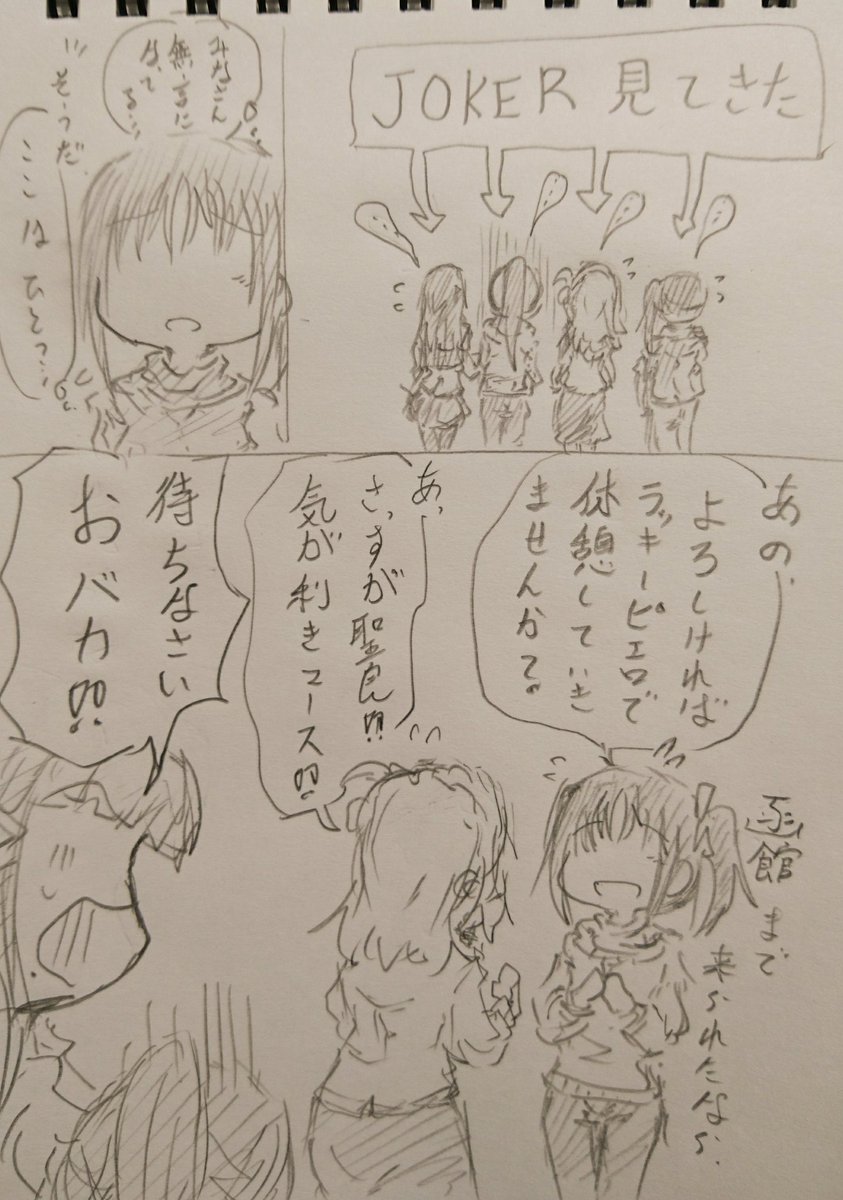 JOKER 見てきた
…
…
…
…
みなさん
無言に
なってる…
そうだ、
ここはひとつ…
あの、
よろしければ
ラッキーピエロで
休憩していき
ませんか?
函館まで
来られたなら、
あっ、
さっすが聖良!!
気が利きマース!!
待ちなさい
おバカ!!